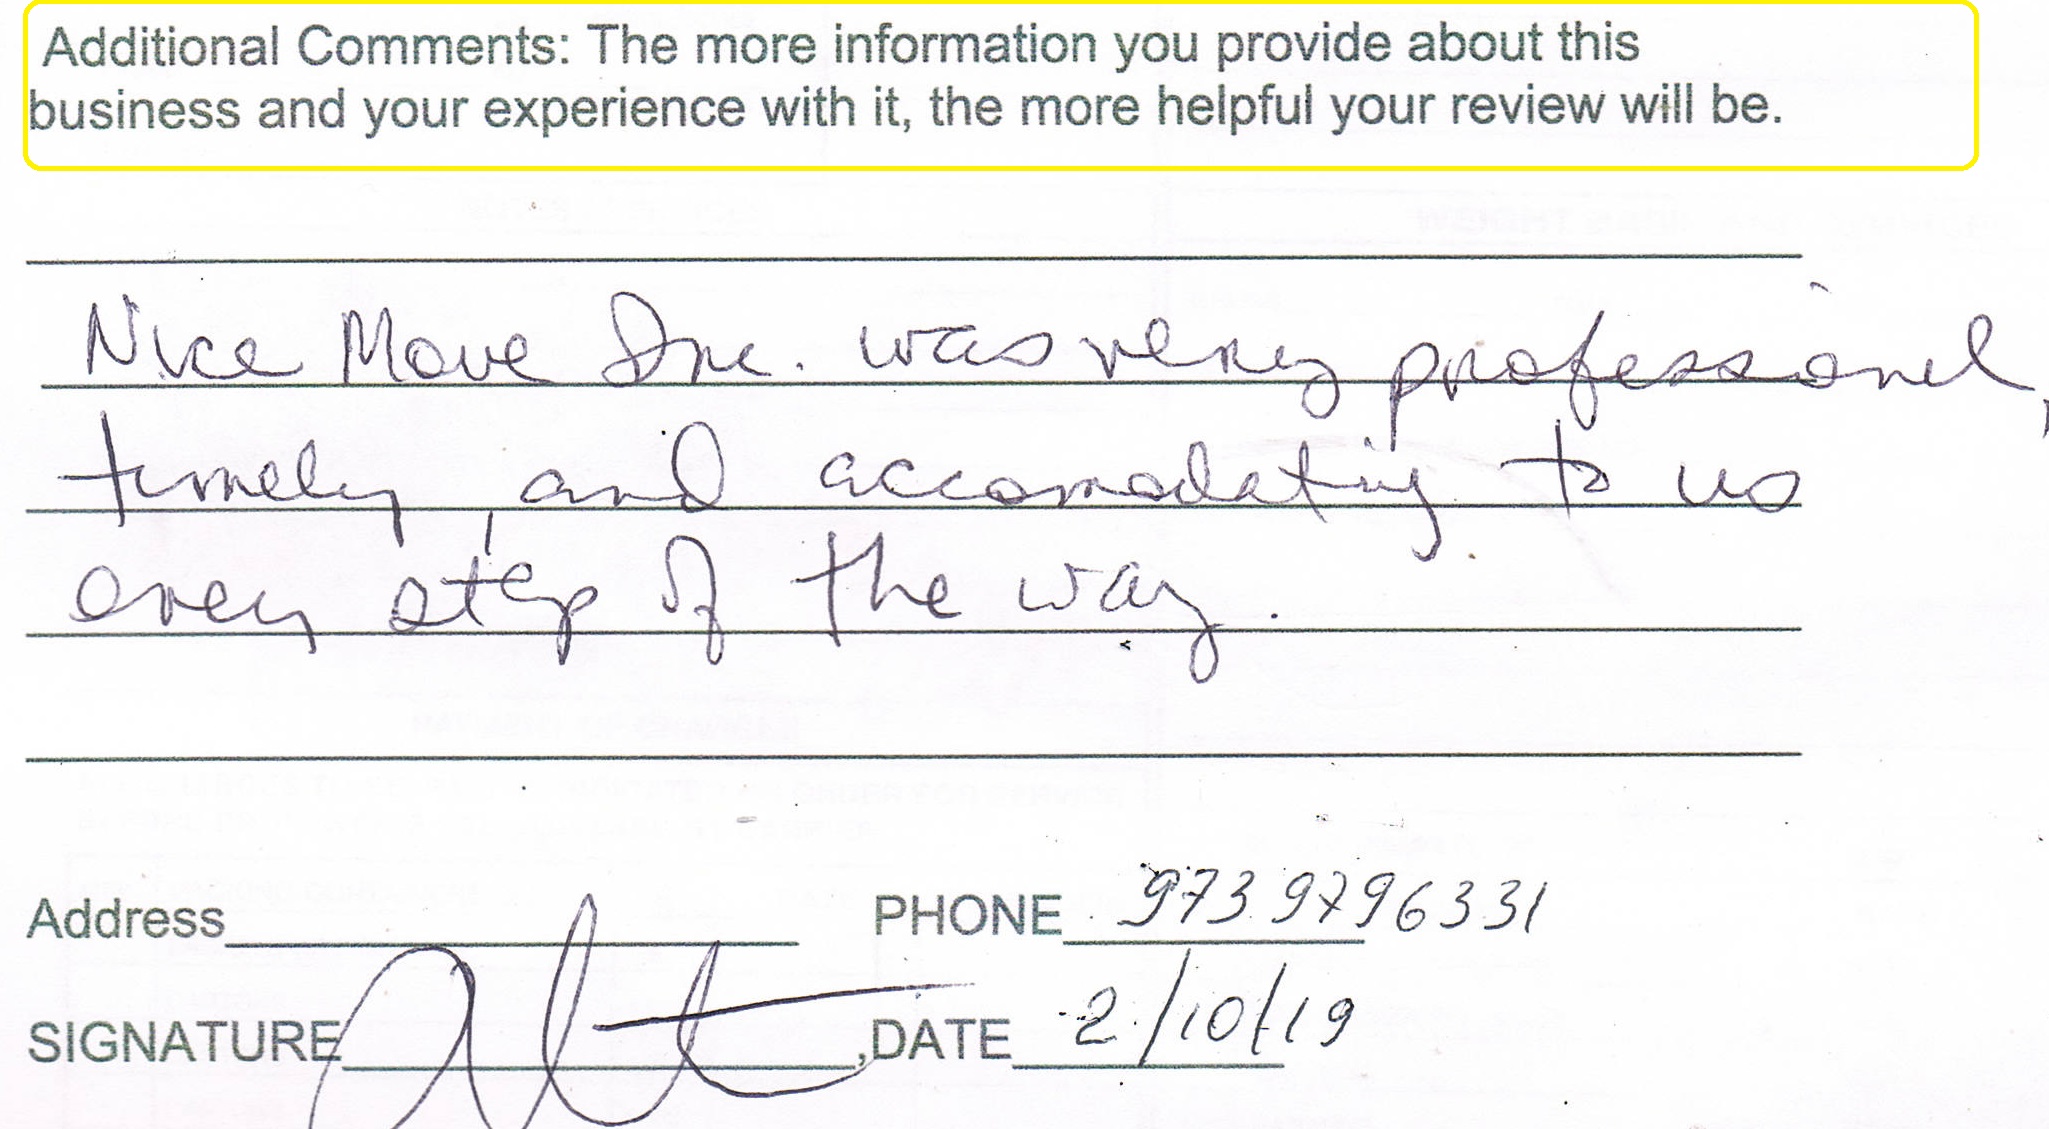 Additional Comments: The more information you provide about this
business and your experience with it, the more helpful your review will be.
Nice Move Inc. was very professional,
timely, and accomodating to us
every step of the way.
Address PHONE 973 9796331
SIGNATURE ,DATE 2/10/19